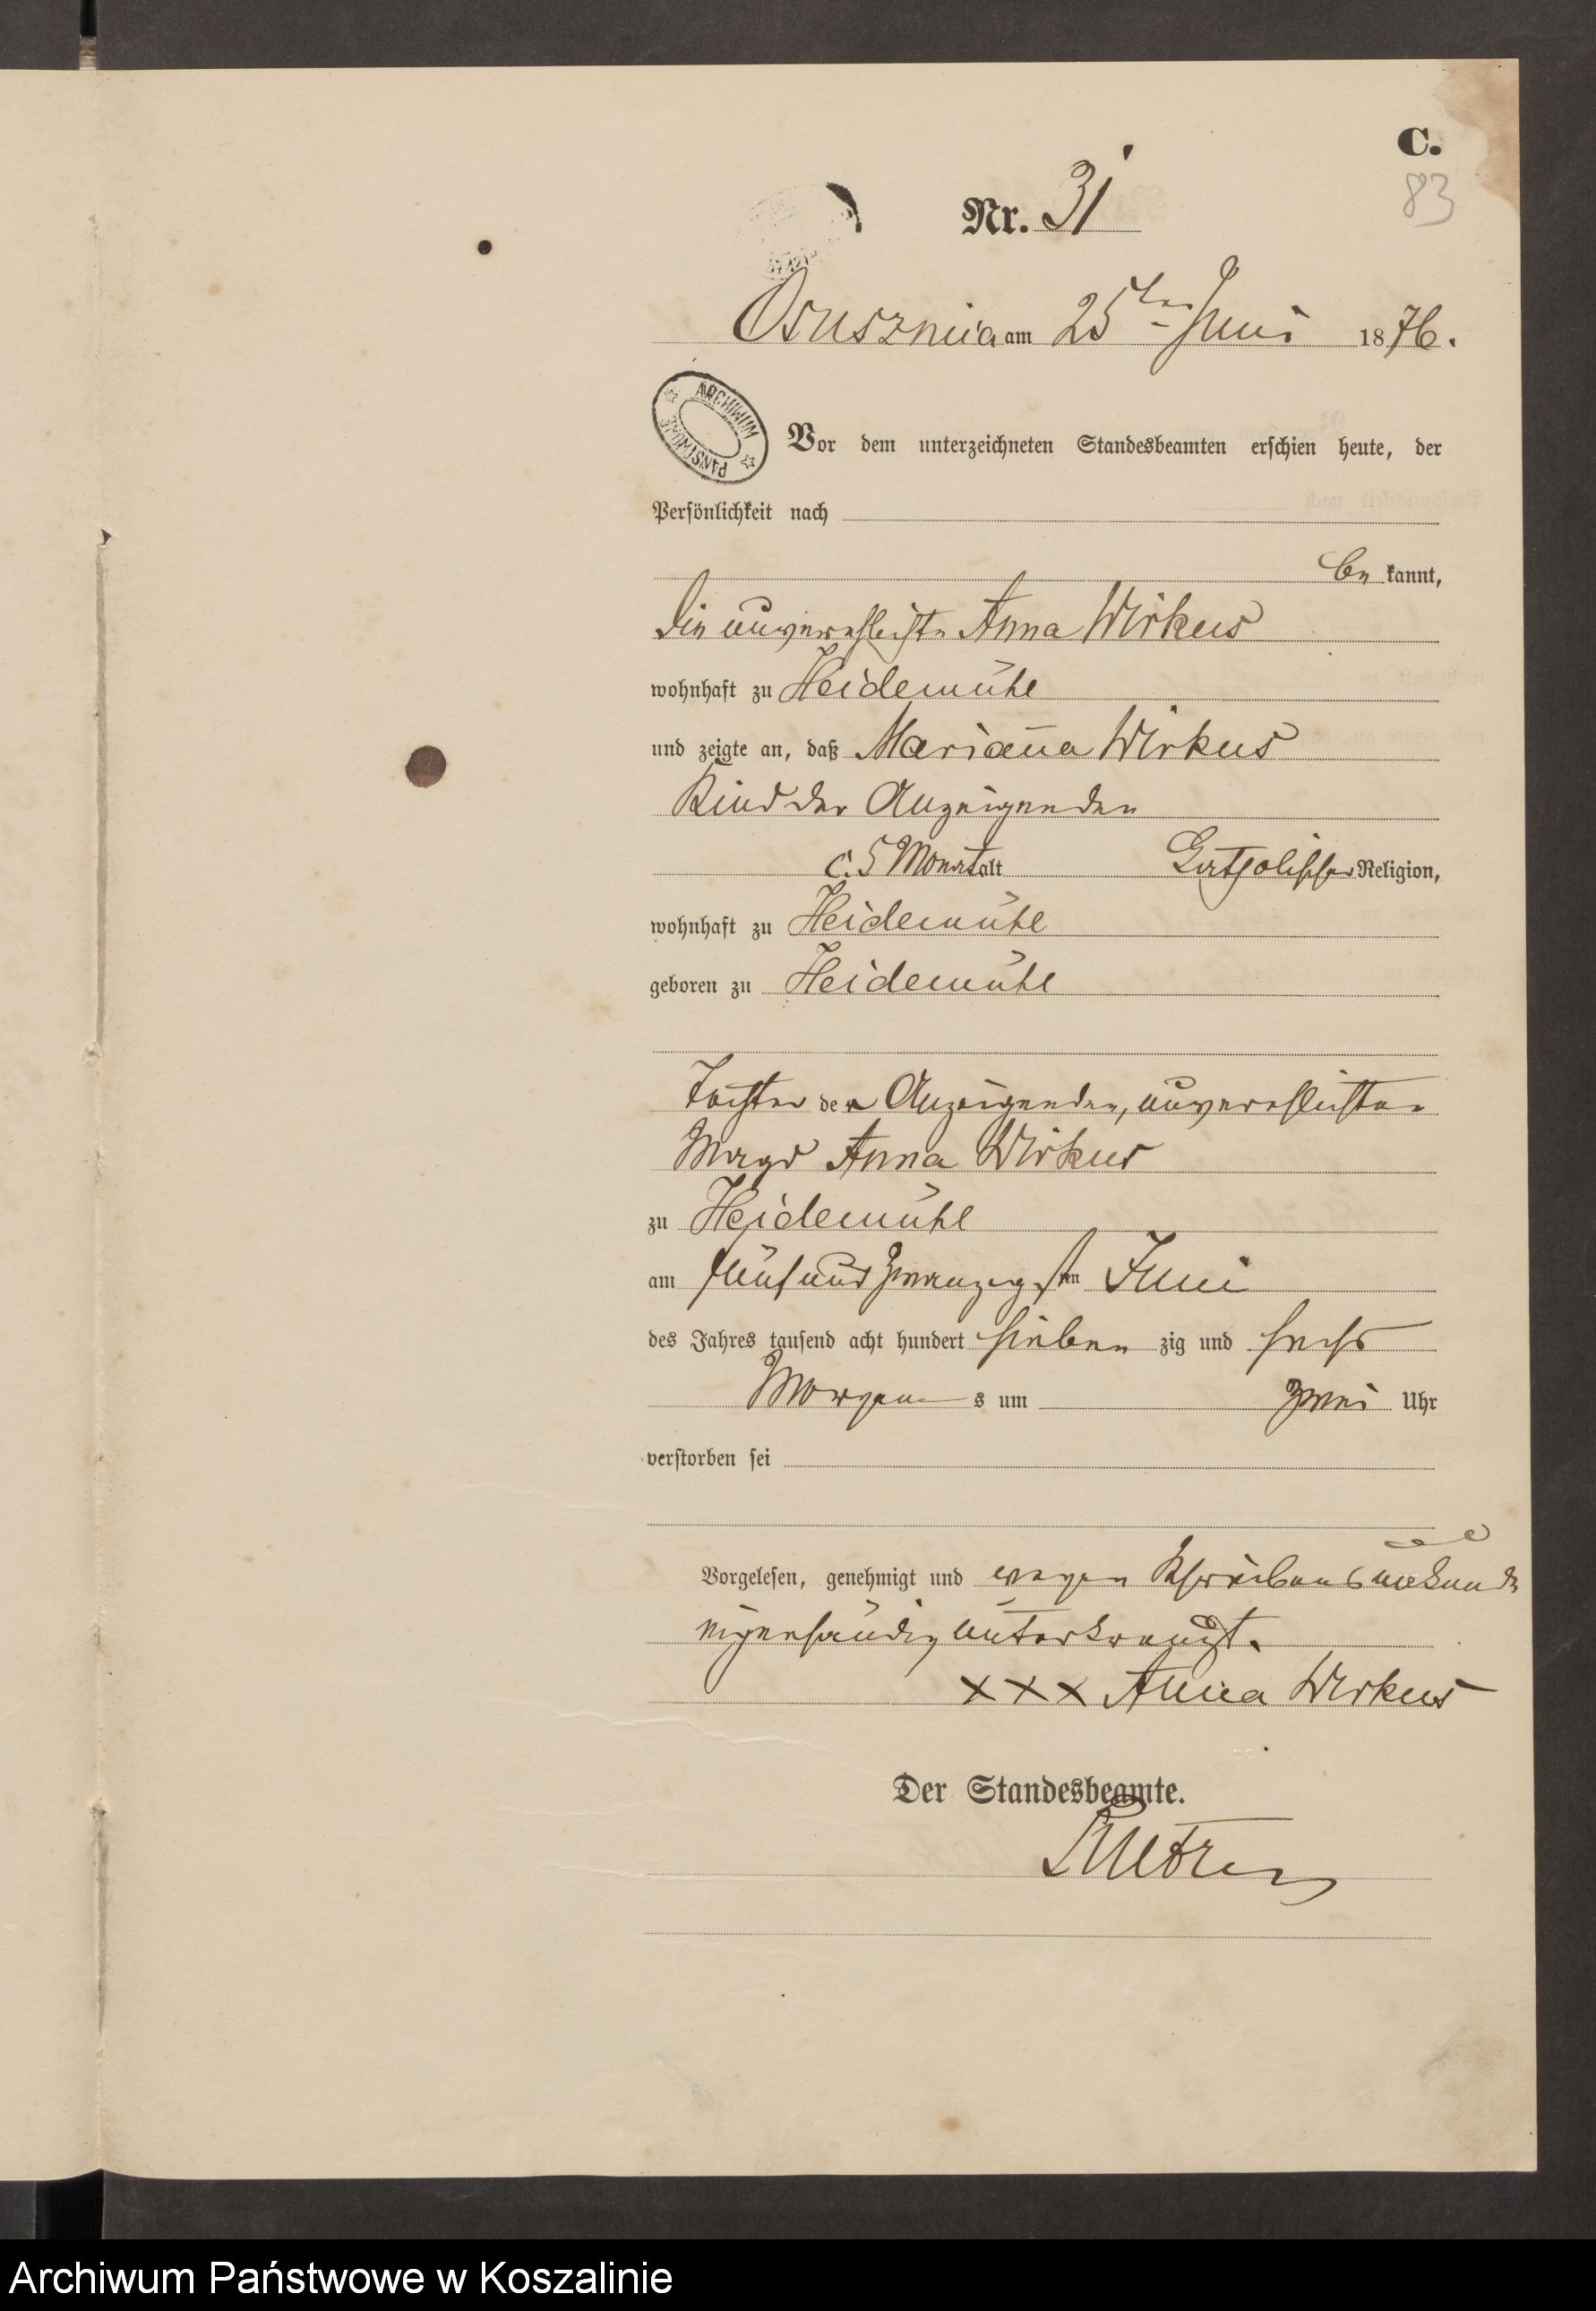 C.
83
Nr. 31
Osusznica am 25ten Juni 1876.
ARCHIWUM PAŃSTWOWE
Vor dem unterzeichneten Standesbeamten erschien heute, der
Persönlichkeit nach
be kannt,
die unverehlichte Anna Wirkus
wohnhaft zu Heidemühl
und zeigte an, daß Marianna Wirkus
Kind der Anzeigenden
c. 5 Monat alt katholischer Religion,
wohnhaft zu Heidemühl
geboren zu Heidemühl
Tochter der Anzeigenden, unverehlichten
Magd Anna Wirkus
zu Heidemühl
am fünf und zwanzigsten Juni
des Jahres tausend acht hundert sieben zig und sechs
Morgens um zwei Uhr
verstorben sei
Vorgelesen, genehmigt und wegen Schreibensunkunde
eigenhändig unterkreuzt.
XXX Anna Wirkus
Der Standesbeamte.
Archiwum Państwowe w Koszalinie